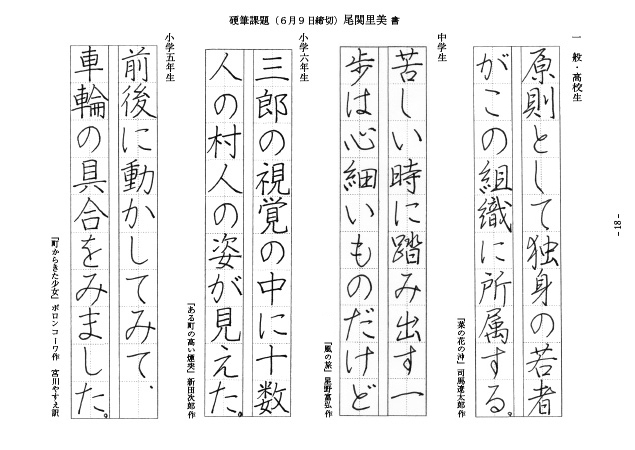 硬筆課題（６月９日締切）尾関里美 書
一般・高校生
原則として独身の若者
がこの組織に所属する。
『菜の花の沖』司馬遼太郎作
中学生
苦しい時に踏み出す一
歩は心細いものだけど
『風の旅』星野富弘作
小学六年生
三郎の視覚の中に十数
人の村人の姿が見えた。
『ある町の高い煙突』新田次郎作
小学五年生
前後に動かしてみて、
車輪の具合をみました。
『町からきた少女』ボロンコーワ作　宮川やすえ訳
- 18 -